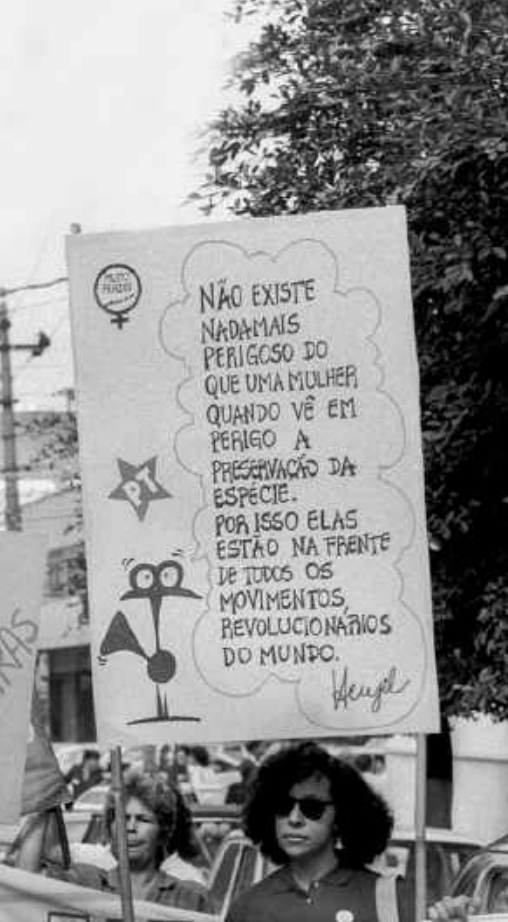 MUITO
PRAZER
PT
NÃO EXISTE
NADA MAIS
PERIGOSO DO
QUE UMA MULHER,
QUANDO VÊ EM
PERIGO A
PRESERVAÇÃO DA
ESPÉCIE.
POR ISSO ELAS
ESTÃO NA FRENTE
DE TODOS OS
MOVIMENTOS
REVOLUCIONÁRIOS
DO MUNDO.
Henfil
RAS